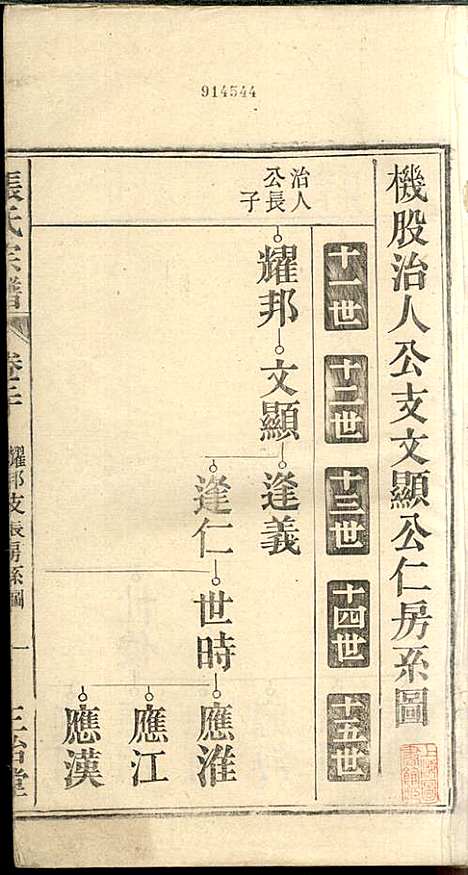 914544
機股治人公支文顯公仁房系圖
十一世
十二世
十三世
十四世
十五世
治人
公長
子
耀邦
文顯
逢義
逢仁
世時
應淮
應江
應漢
張氏宗譜
耀邦支長房系圖
一